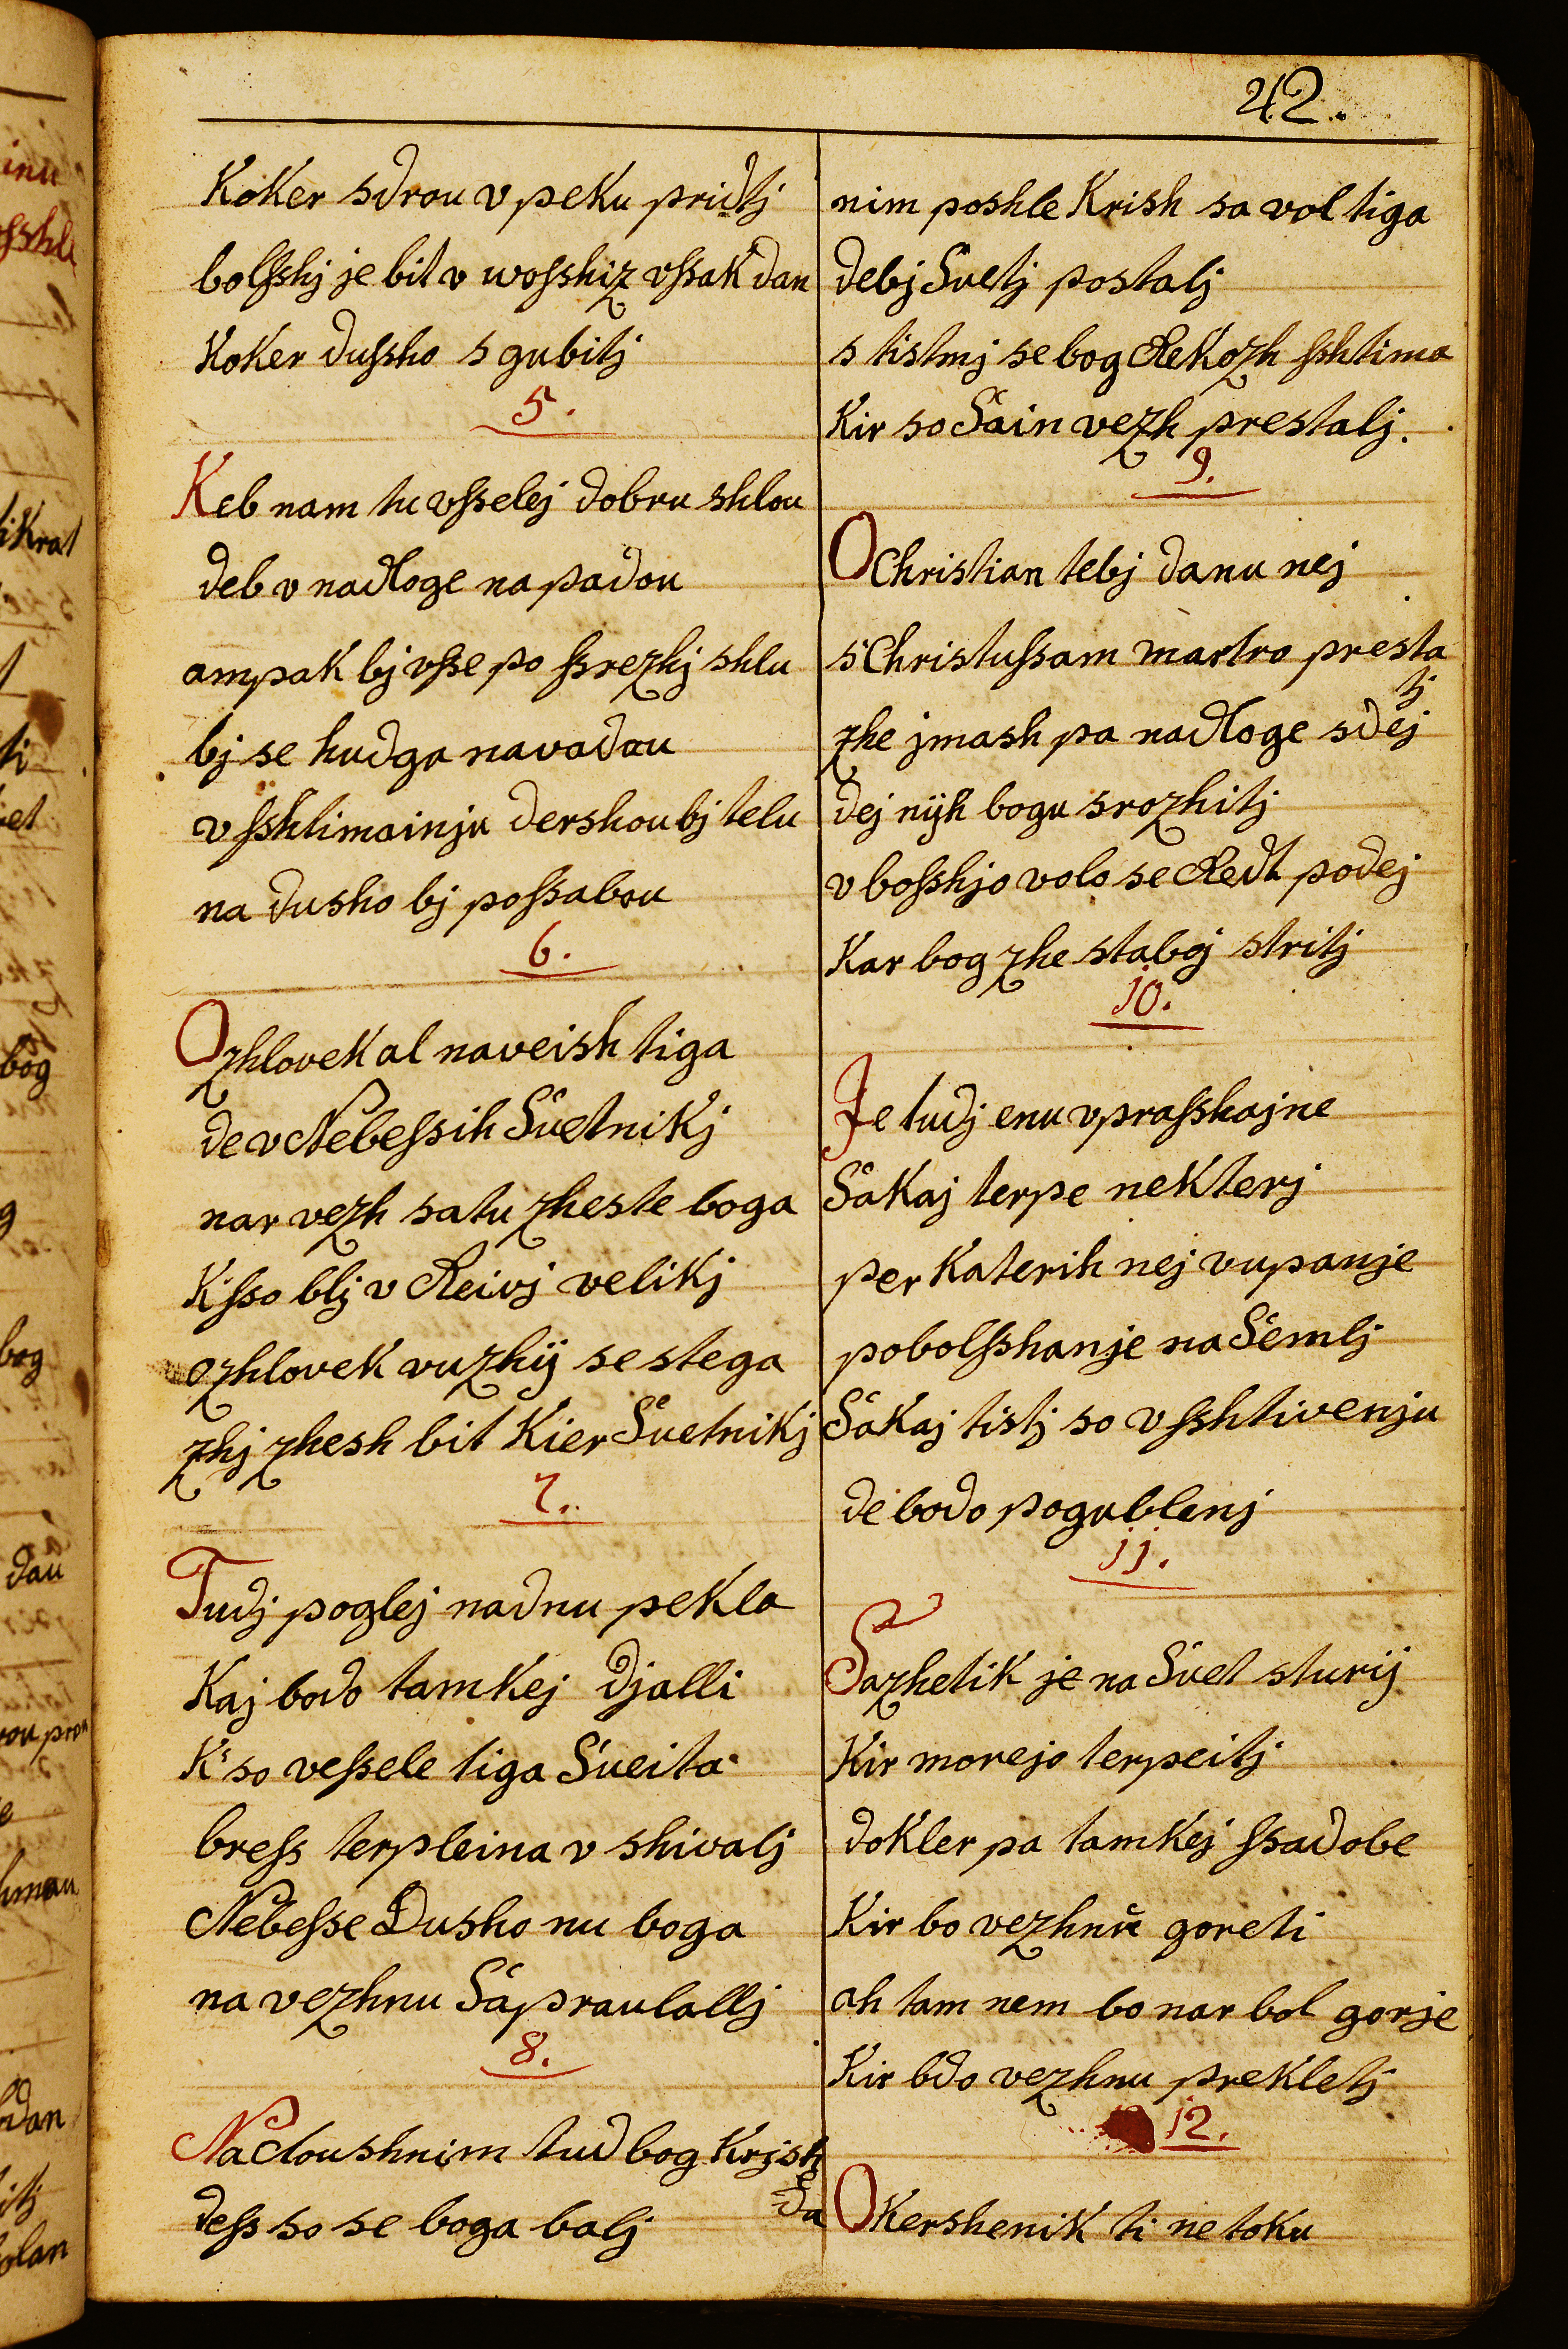 42.
Koker sdrou v peku pridtj
bolsshj je bit v wosshiz vssak dan
Koker dussho s gubitj
5.
Keb nam tu vsselej dobru shlou
deb v nadloge na padou
ampak bj vsse po ssrezhj shlu
bj se hudga navadou
v sshtimainju dershou bj telu
na dusho bj possabou
6.
O zhlovek al naveish tiga
de v Nebessih Svetnikj
nar vezh satu zheste boga
K'sso blj v Reivj velikj
o zhlovek vuzhij se stega
zhj zhesh bit Kier Svetnikj
7.
Tudj poglej nadnu pekla
Kaj bodo tamkej djalli
K'so vessele tiga Sveita
bress terpleina v shivalj
Nebesse Dusho nu boga
na vezhnu Sapraulallj
8.
Nadoushnim tud bog Krjsh
da
dess so se boga balj
nim poshle Krish sa vol tiga
debj Svetj postalj
s tistmj se bog Rekozh sshtima
Kir so Sain vezh prestalj.
9.
O Christian tebj danu nej
s Christussam martro presta
tj
zhe jmash pa nadloge sdej
dej nijh bogu srozhitj
v bosshjo volo se Redt podej
Kar bog zhe staboj stritj
10.
Je tudj enu vprasshajne
Sakaj terpe nekterj
per Katerih nej vupanje
pobolsshanje na Semlj
Sakaj tistj so v sshtivenju
de bodo pogublenj
11.
Sazhetik je na Svet sturij
Kir morejo terpeitj
dokler pa tamkej ssadobe
Kir bo vezhnu goreti
ah tam nem bo nar bol gorje
Kir bdo vezhnu prekletj
12.
O Kershenik ti ne toku